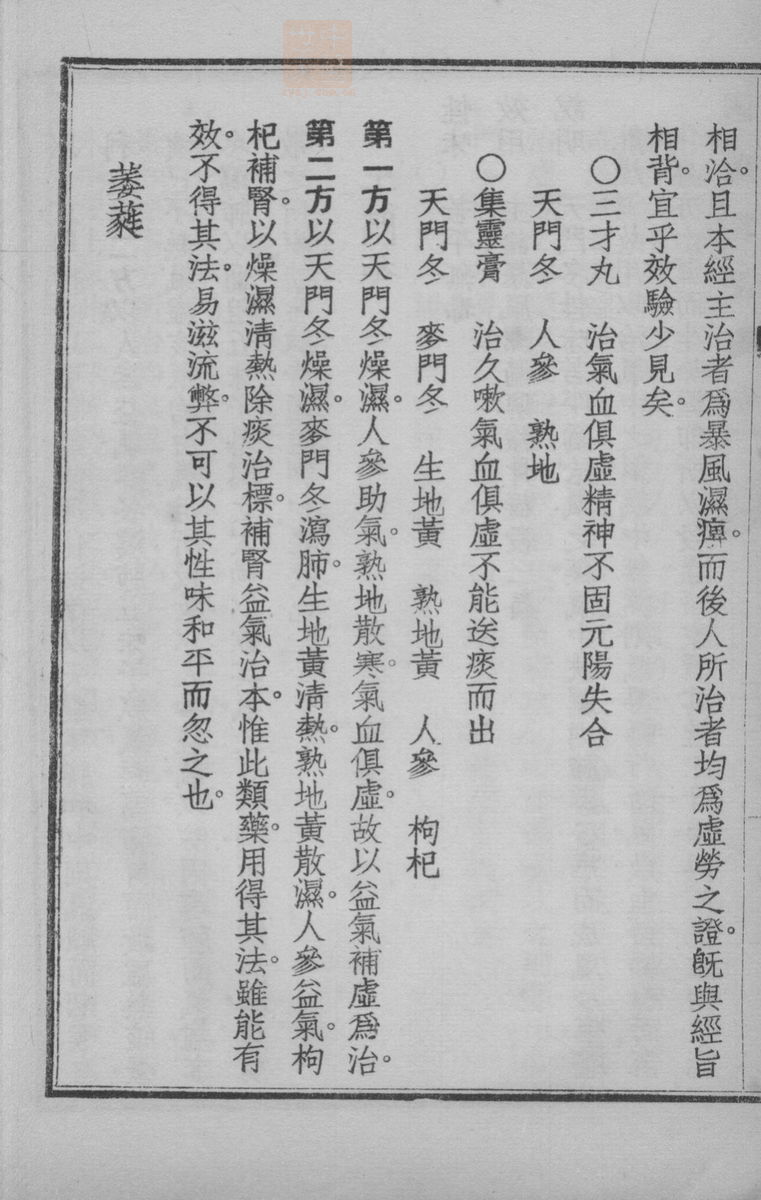 相洽。且本經主治者爲暴風濕痺。而後人所治者均爲虛勞之證。旣與經旨
相背。宜乎效驗少見矣。
〇三才丸　治氣血俱虛精神不固元陽失合
天門冬　人參　熟地
〇集靈膏　治久嗽氣血俱虛不能送痰而出
天門冬　麥門冬　生地黃　熟地黃　人參　枸杞
第一方以天門冬燥濕。人參助氣。熟地散寒。氣血俱虛。故以益氣補虛爲治。
第二方以天門冬燥濕。麥門冬瀉肺。生地黃清熱。熟地黃散濕。人參益氣。枸
杞補腎。以燥濕淸熱除痰治標。補腎益氣治本。惟此類藥。用得其法。雖能有
效。不得其法。易滋流弊。不可以其性味和平而忽之也。
萎蕤